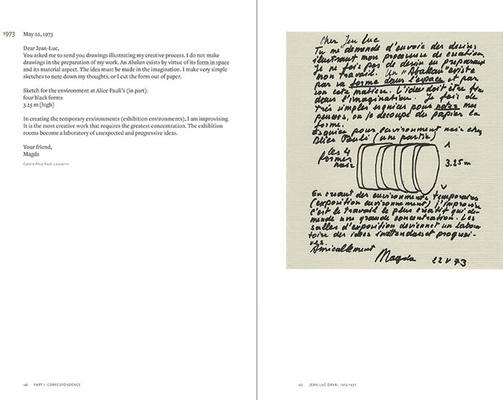 1973 May 22, 1973
Dear Jean-Luc,
You asked me to send you drawings illustrating my creative process. I do not make
drawings in the preparation of my work. An Abakan exists by virtue of its form in space
and its material aspect. The idea must be made in the imagination. I make very simple
sketches to note down my thoughts, or I cut the form out of paper.
Sketch for the environment at Alice Pauli's (in part):
four black forms
3.25 m [high]
In creating the temporary environments (exhibition environments), I am improvising.
It is the most creative work that requires the greatest concentration. The exhibition
rooms become a laboratory of unexpected and progressive ideas.
Your friend,
Magda
Galerie Alice Pauli Lausanne
PART I CORRESPONDENCE
Cher Jean Luc
Tu me demande d'envoie des desins
illustrant mon processus de creation
Je ne fais pas de dessin en preparant
mon travail. Un "Abakan" existe
par sa forme dans l'espace et par
son coté matière. L'idée doit être fait
dans l'imagination. Je fais de
très simples esquisses pour noter mes
pensees, ou je découpe du papier la
forme.
Esquisse pour environment noir chez
Alice Pauli (une partie)
les 4
formes
noires
1
3.25 m
En creant des environments temporaires
(exposition environment) j'improvise
c'est le travail le plus creatif qui de-
mande une grande concentration. Les
salles d'exposition deviennent un labora-
toire des idées inattendues et progressi-
ves.
Amicallement
Magda 22 V 73
JEAN-LUC DAVAL